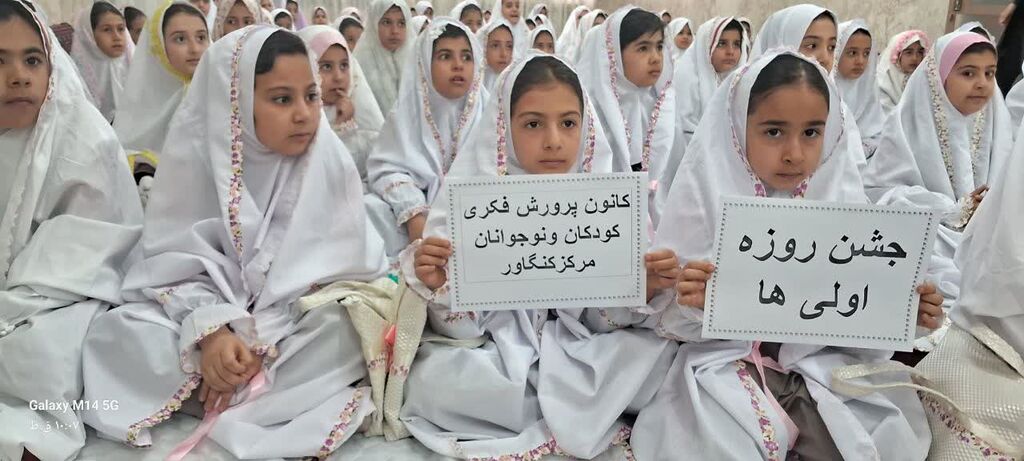 کانون پرورش فکری
کودکان ونوجوانان
مرکزکنگاور
جشن روزه
اولی ها
Galaxy M14 5G
۱۰:۰۷ ق.ظ